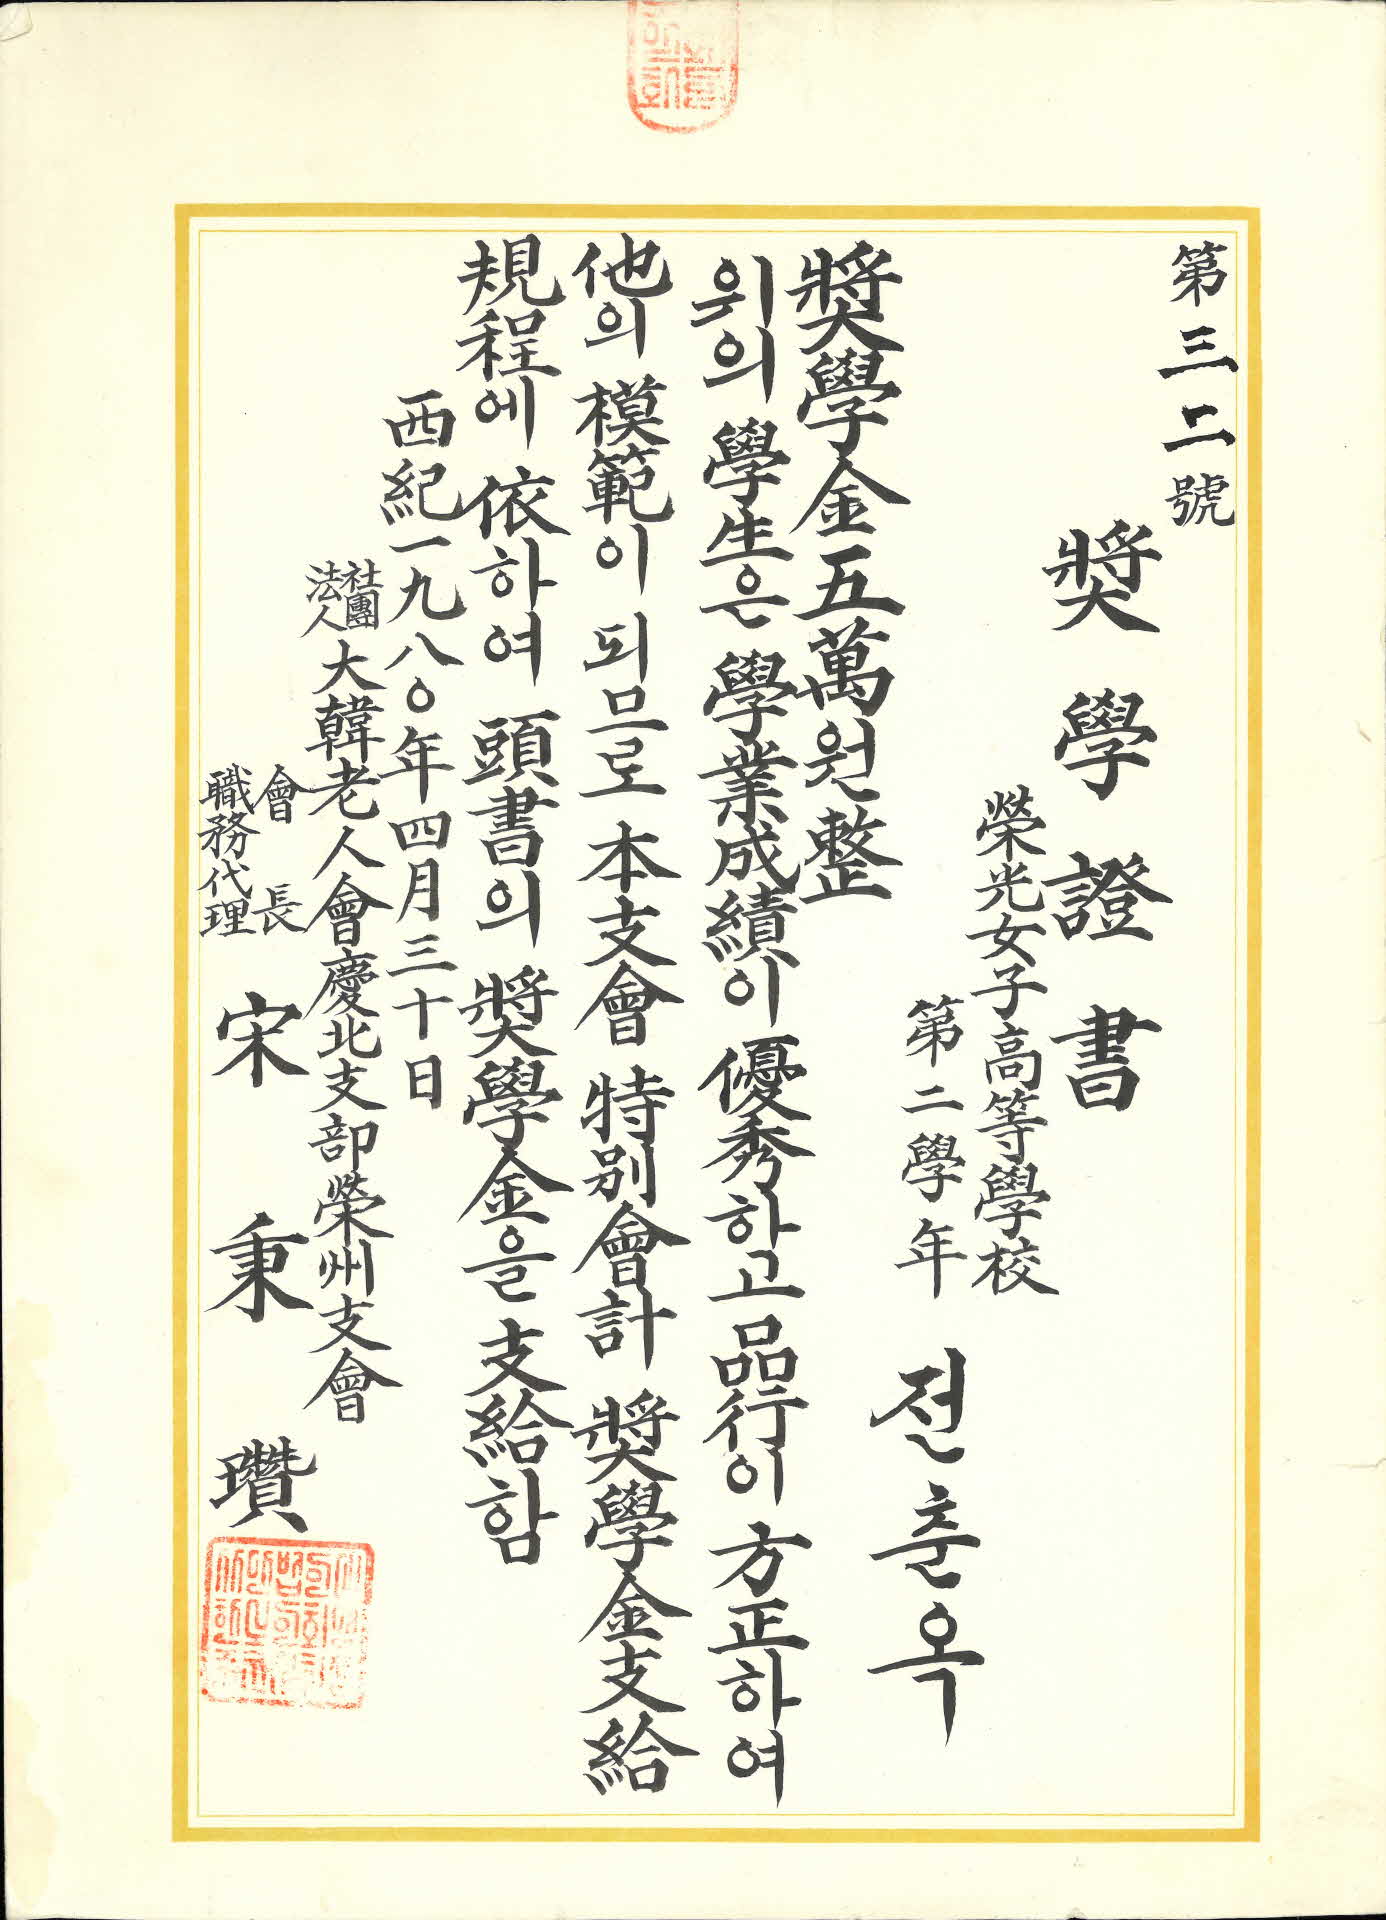 第三二號
獎學證書
榮光女子高等學校
第二學年
전춘옥
獎學金五萬원整
위의 學生은 學業成績이 優秀하고 品行이 方正하여
他의 模範이 되므로 本支會 特別會計 獎學金支給
規程에 依하여 頭書의 獎學金을 支給함
西紀一九八〇年四月三十日
社團法人 大韓老人會慶北支部榮州支會
會長
職務代理
宋秉瓚